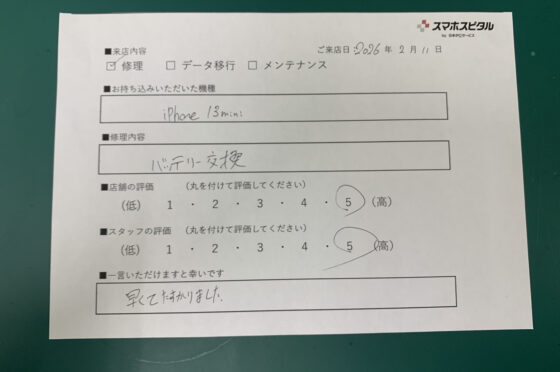 スマホスピタル
by 日本PCサービス
■来店内容
ご来店日：2026年 2月 11日
☑ 修理 □ データ移行 □ メンテナンス
■お持ち込みいただいた機種
iPhone 13mini
■修理内容
バッテリー交換
■店舗の評価 （丸を付けて評価してください）
（低） 1 ・ 2 ・ 3 ・ 4 ・ 5 （高）
■スタッフの評価 （丸を付けて評価してください）
（低） 1 ・ 2 ・ 3 ・ 4 ・ 5 （高）
■一言いただけますと幸いです
早くてたすかりました.